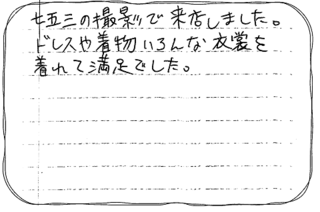 七五三の撮影で来店しました。
ドレスや着物いろんな衣裳を
着れて満足でした。